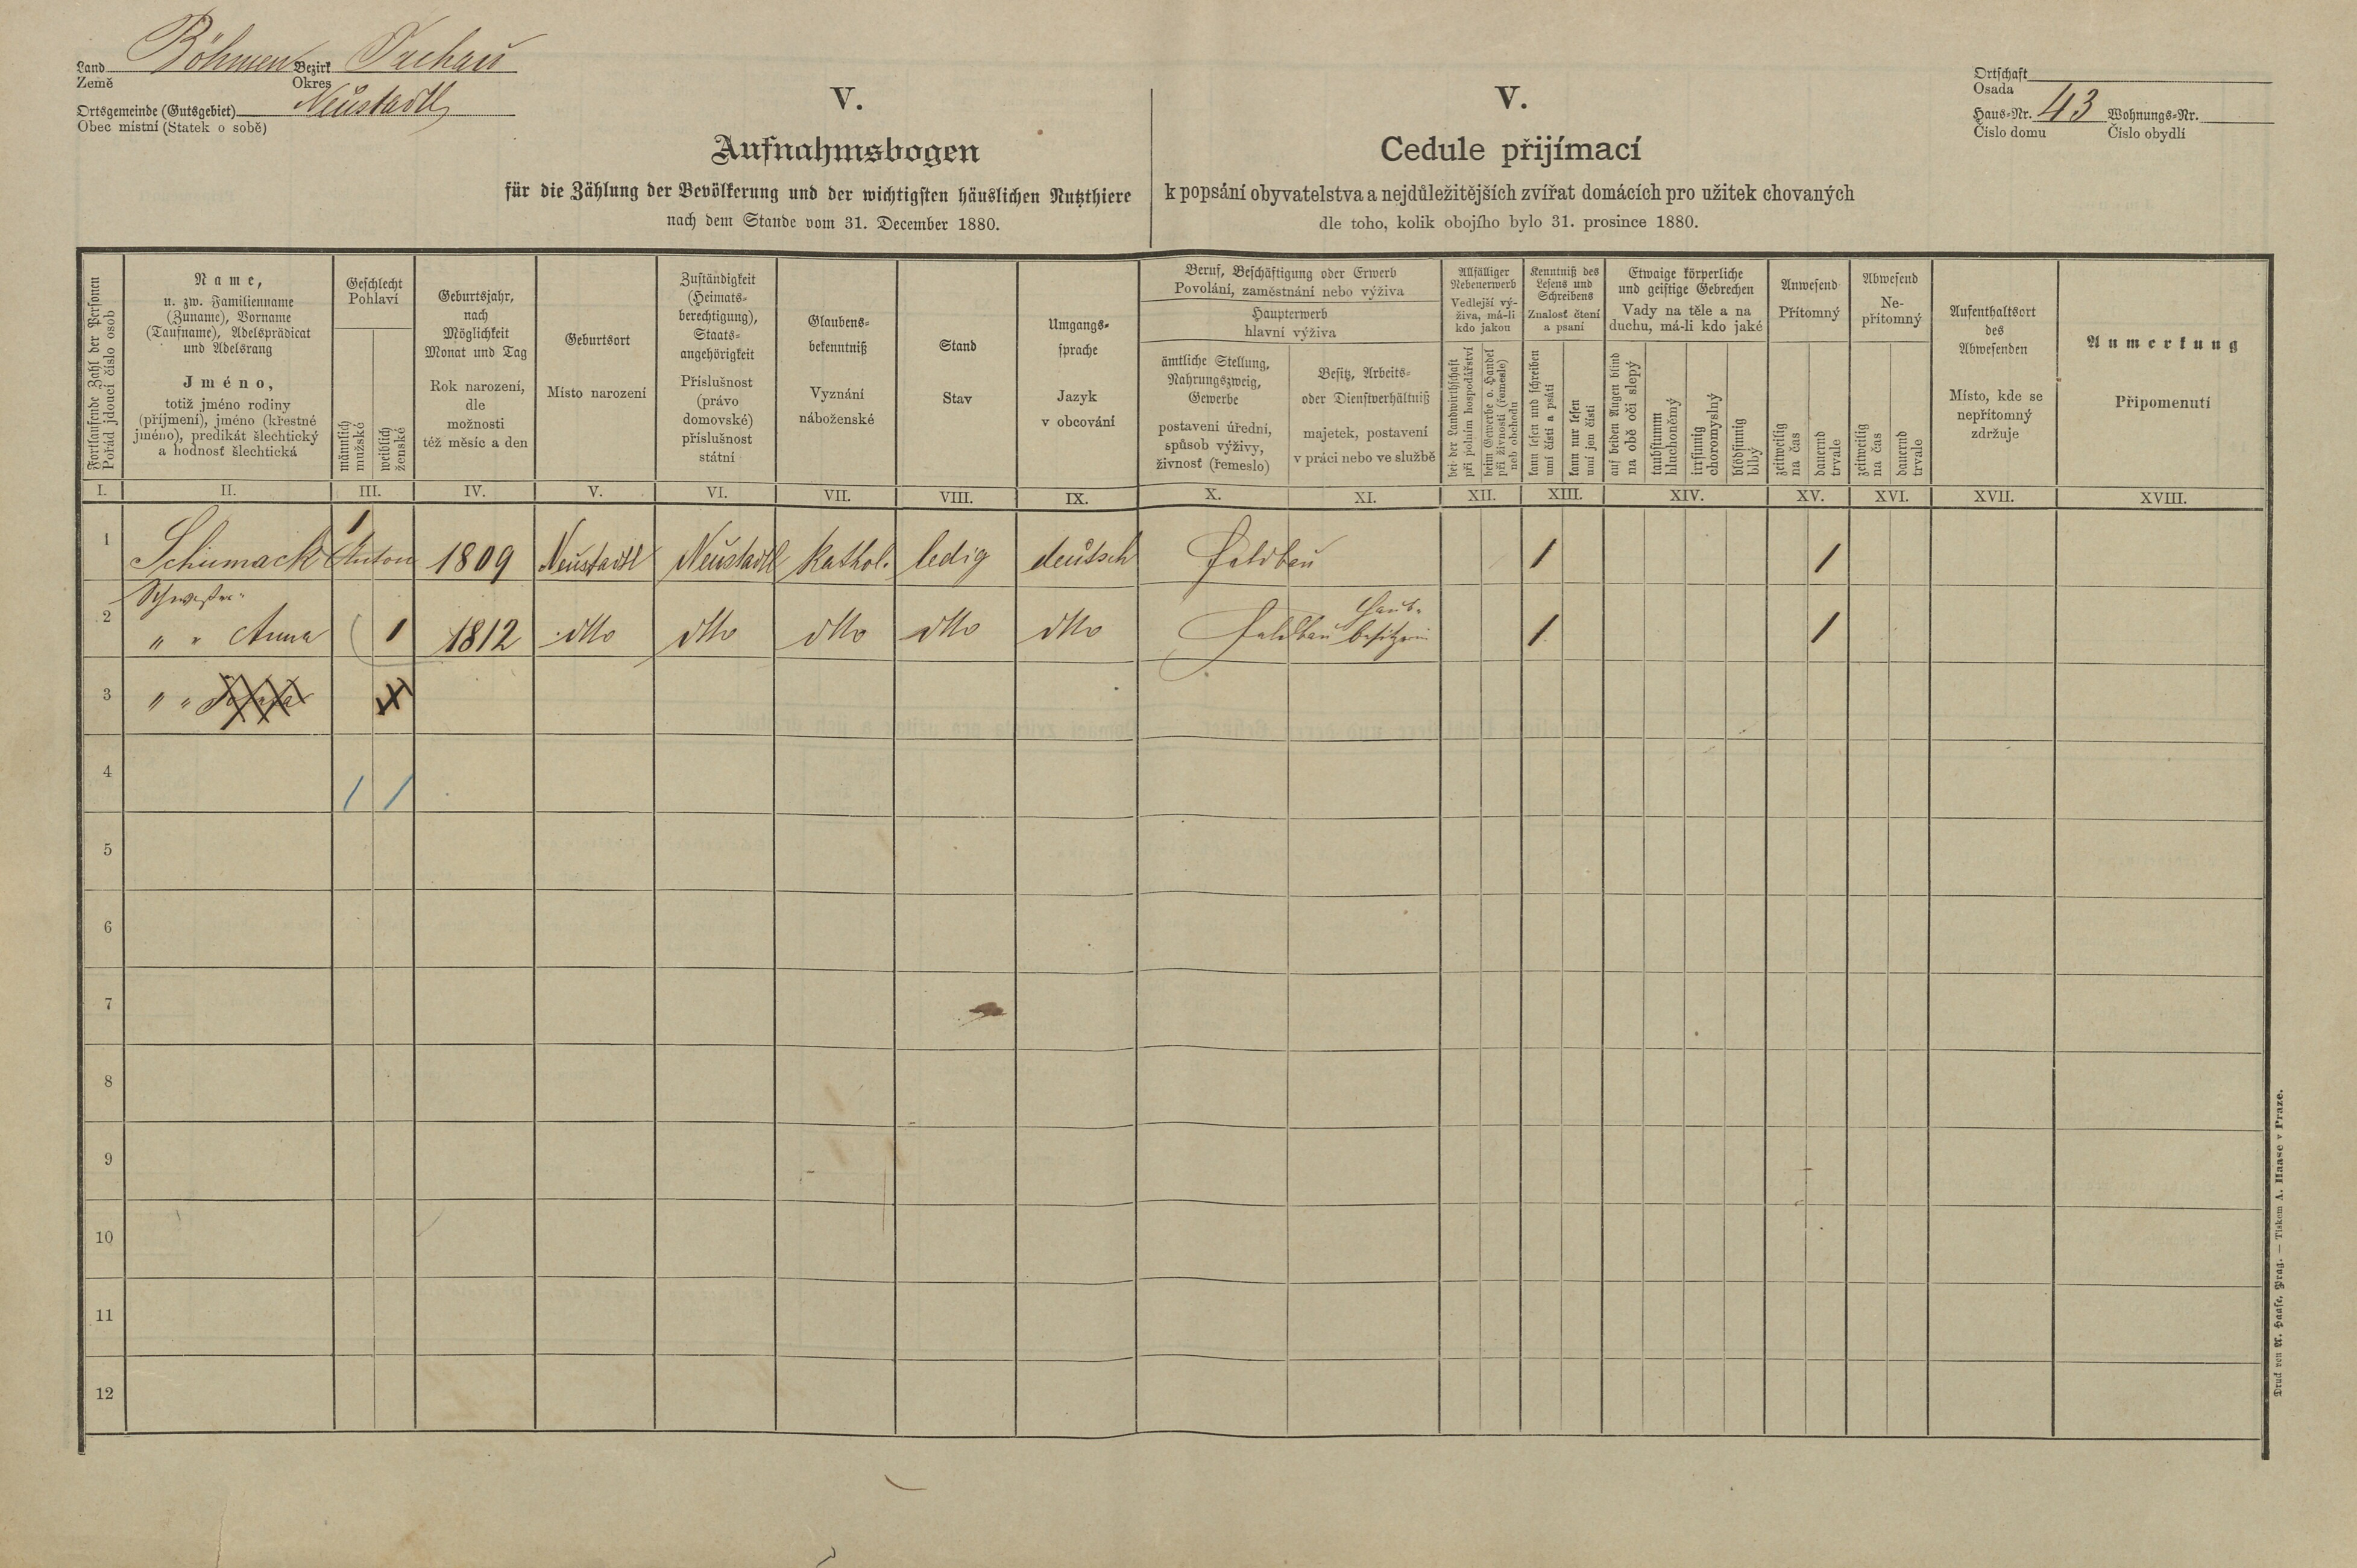 Land Böhmen Bezirk Tachau
Země Okres
Ortsgemeinde (Gutsgebiet) Neustadtl
Obec místní (Statek o sobě)
Ortschaft
Osada
Haus-Nr. 43 Wohnungs-Nr.
Číslo domu Číslo obydlí
V.
Aufnahmsbogen
für die Zählung der Bevölkerung und der wichtigsten häuslichen Nutzthiere
nach dem Stande vom 31. December 1880.
V.
Cedule přijímací
k popsání obyvatelstva a nejdůležitějších zvířat domácích pro užitek chovaných
dle toho, kolik obojího bylo 31. prosince 1880.
Fortlaufende Zahl der Personen
Pořád jdoucí číslo osob
Name,
u. zw. Familienname
(Zuname), Vorname
(Taufname), Adelsprädicat
und Adelsrang
Jméno,
totiž jméno rodiny
(příjmení), jméno (křestné
jméno), predikát šlechtický
a hodnosť šlechtická
Geschlecht
Pohlaví
männlich
mužské
weiblich
ženské
Geburtsjahr,
nach
Möglichkeit
Monat und Tag
Rok narození,
dle
možnosti
též měsíc a den
Geburtsort
Místo narození
Zuständigkeit
(Heimats-
berechtigung),
Staats-
angehörigkeit
Příslušnost
(právo
domovské)
příslušnost
státní
Glaubens-
bekenntniß
Vyznání
náboženské
Stand
Stav
Umgangs-
sprache
Jazyk
v obcování
Beruf, Beschäftigung oder Erwerb
Povolání, zaměstnání nebo výživa
Haupterwerb
hlavní výživa
ämtliche Stellung,
Nahrungszweig,
Gewerbe
postavení úřední,
spůsob výživy,
živnosť (řemeslo)
Besitz, Arbeits-
oder Dienstverhältniß
majetek, postavení
v práci nebo ve službě
Allfälliger
Nebenerwerb
Vedlejší vý-
živa, má-li
kdo jakou
bei der Landwirthschaft
při polním hospodářství
beim Gewerbe o. Handel
při živnosti (řemesle)
neb obchodu
Kenntniß des
Lesens und
Schreibens
Znalosť čtení
a psaní
kann lesen und schreiben
umí čísti a psáti
kann nur lesen
umí jen čísti
Etwaige körperliche
und geistige Gebrechen
Vady na těle a na
duchu, má-li kdo jaké
auf beiden Augen blind
na obě oči slepý
taubstumm
hluchoněmý
irrsinnig
choromyslný
blödsinnig
blbý
Anwesend
Přítomný
zeitweilig
na čas
dauernd
trvale
Abwesend
Ne-
přítomný
zeitweilig
na čas
dauernd
trvale
Aufenthaltsort
des
Abwesenden
Místo, kde se
nepřítomný
zdržuje
Anmerkung
Připomenutí
I. II. III. IV. V. VI. VII. VIII. IX. X. XI. XII. XIII. XIV. XV. XVI. XVII. XVIII.
1 Schimack Anton 1 1809 Neustadtl Neustadtl kathol. ledig deutsch Feldbau 1 1
Schwester
2 " " Anna 1 1812 dtto dtto dtto dtto dtto Feldbau Haus-
besitzerin 1 1
3 " "
4 1 1
5
6
7
8
9
10
11
12
Druck von A. Haase, Prag. — Tiskem A. Haase v Praze.